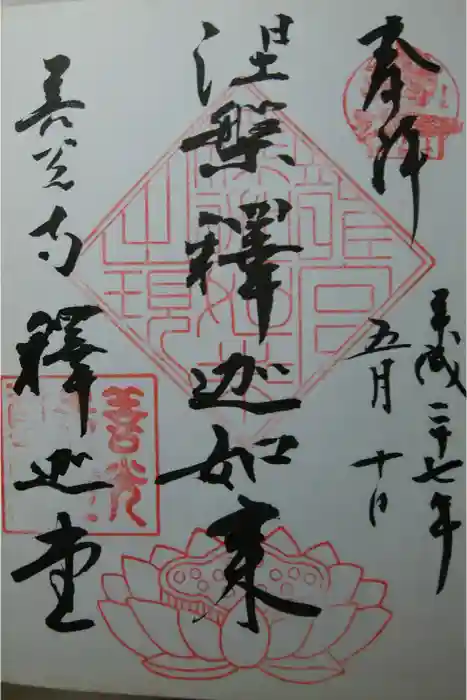 奉拝
平成二十七年
五月十日
涅槃釋迦如来
善光寺
釋迦堂
善光